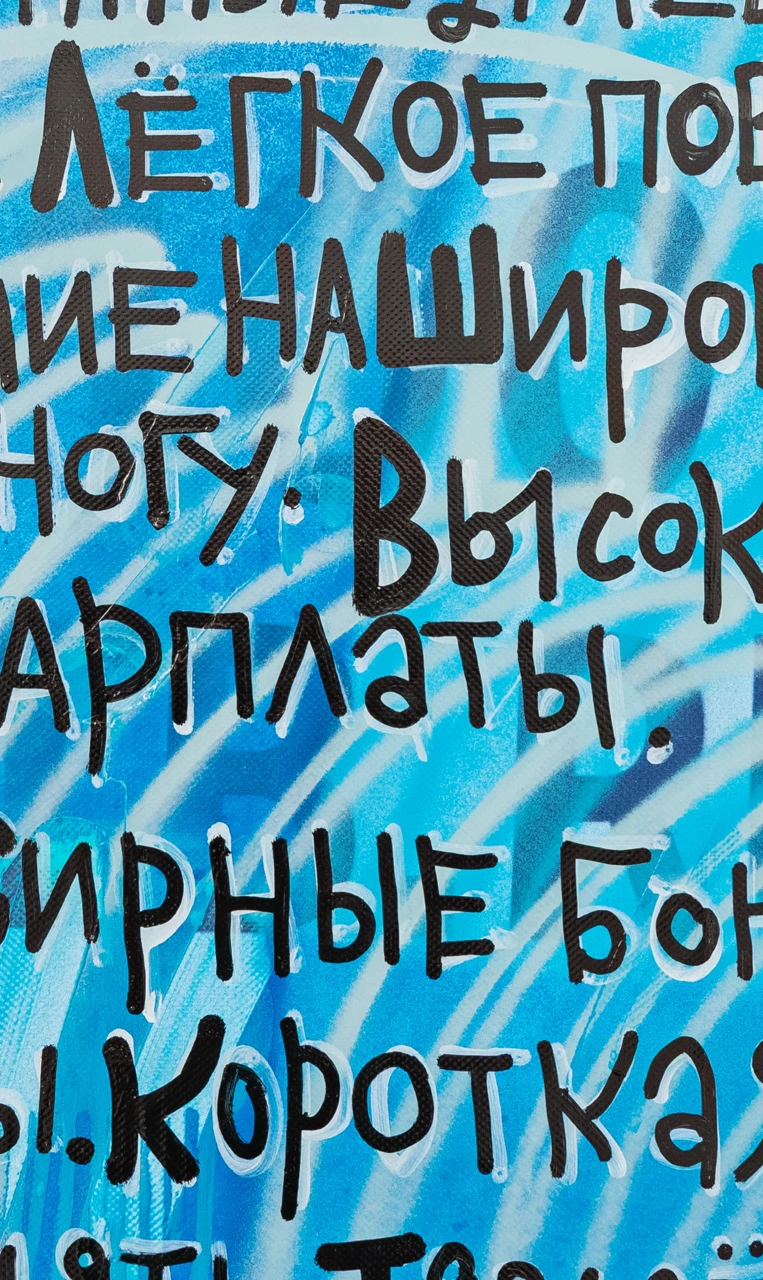 ЛЁГКОЕ ПОВ
НИЕ НА ШИРОК
НОГУ. ВЫСОК
АРПЛАТЫ.
ИРНЫЕ БОН
Ы. КОРОТКАЯ